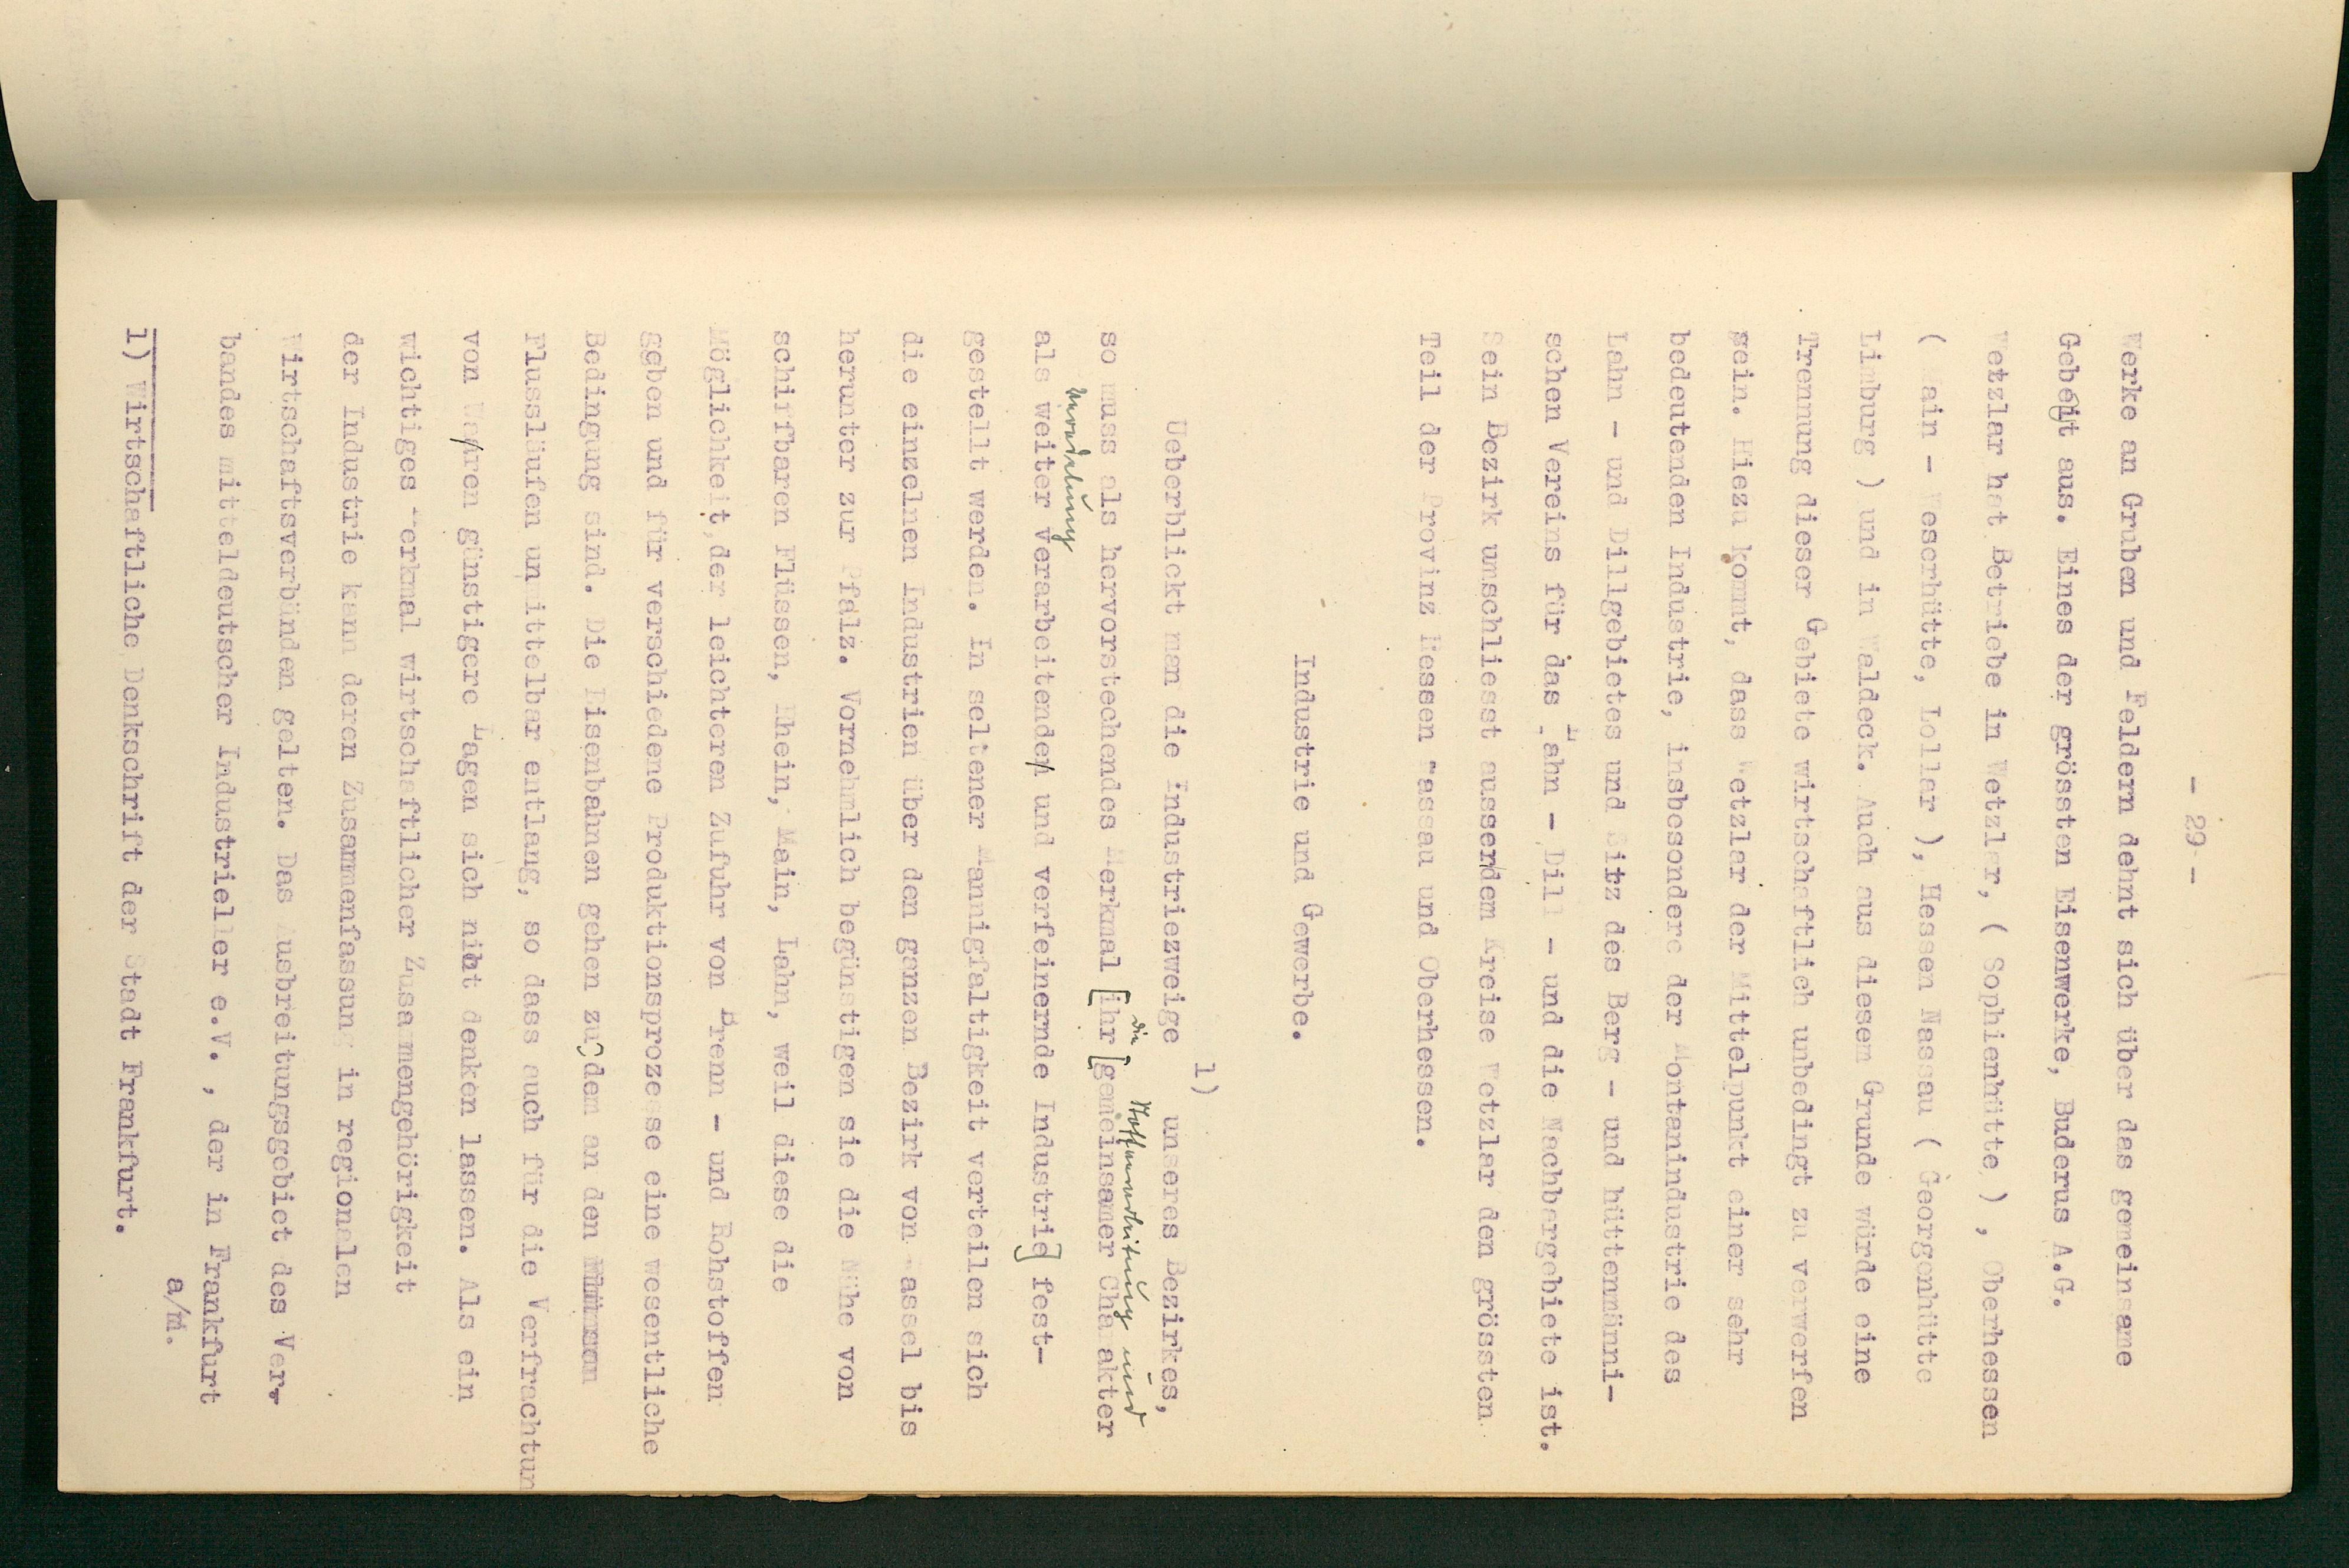 - 29 -
Werke an Gruben und Feldern dehnt sich über das gemeinsame
Gebeit aus. Eines der grössten Eisenwerke, Buderus A.G.
Wetzlar hat Betriebe in Wetzlar, ( Sophienhütte ) , Oberhessen
( Main - Weserhütte, Lollar ), Hessen Nassau ( Georgenhütte
Limburg ) und in Waldeck. Auch aus diesem Grunde würde eine
Trennung dieser Gebiete wirtschaftlich unbedingt zu verwerfen
sein. Hiezu kommt, dass Wetzlar der Mittelpunkt einer sehr
bedeutenden Industrie, insbesondere der Montanindustrie des
Lahn - und Dillgebietes und Sitz des Berg - und hüttenmänni-
schen Vereins für das Lahn - Dill - und die Nachbargebiete ist.
Sein Bezirk umschliesst ausserdem Kreise Wetzlar den grössten
Teil der Provinz Hessen Nassau und Oberhessen.
Industrie und Gewerbe.
1)
Ueberblickt man die Industriezweige unseres Bezirkes,
die Stoffverarbeitung und
so muss als hervorstechendes Merkmal [ihr [gemeinsamer Charakter
veredelung
als weiter verarbeitenden und verfeinernde Industrie] fest-
gestellt werden. In seltener Mannigfaltigkeit verteilen sich
die einzelnen Industrien über den ganzen Bezirk von Kassel bis
herunter zur Pfalz. Vornehmlich begünstigen sie die Nähe von
schiffbaren Flüssen, Rhein, Main, Lahn, weil diese die
Möglichkeit,der leichteren Zufuhr von Brenn - und Rohstoffen
geben und für verschiedene Produktionsprozesse eine wesentliche
Bedingung sind. Die Eisenbahnen gehen zu dem an den
Flussläufen unmittelbar entlang, so dass auch für die Verfrachtun
von Waaren günstigere Lagen sich niht denken lassen. Als ein
wichtiges Merkmal wirtschaftlicher Zusammengehörigkeit
der Industrie kann deren Zusammenfassung in regionalen
Wirtschaftsverbänden gelten. Das Ausbreitungsgebiet des Ver-
bandes mitteldeutscher Industrieller e.V. , der in Frankfurt
a/M.
1) Wirtschaftliche Denkschrift der Stadt Frankfurt.